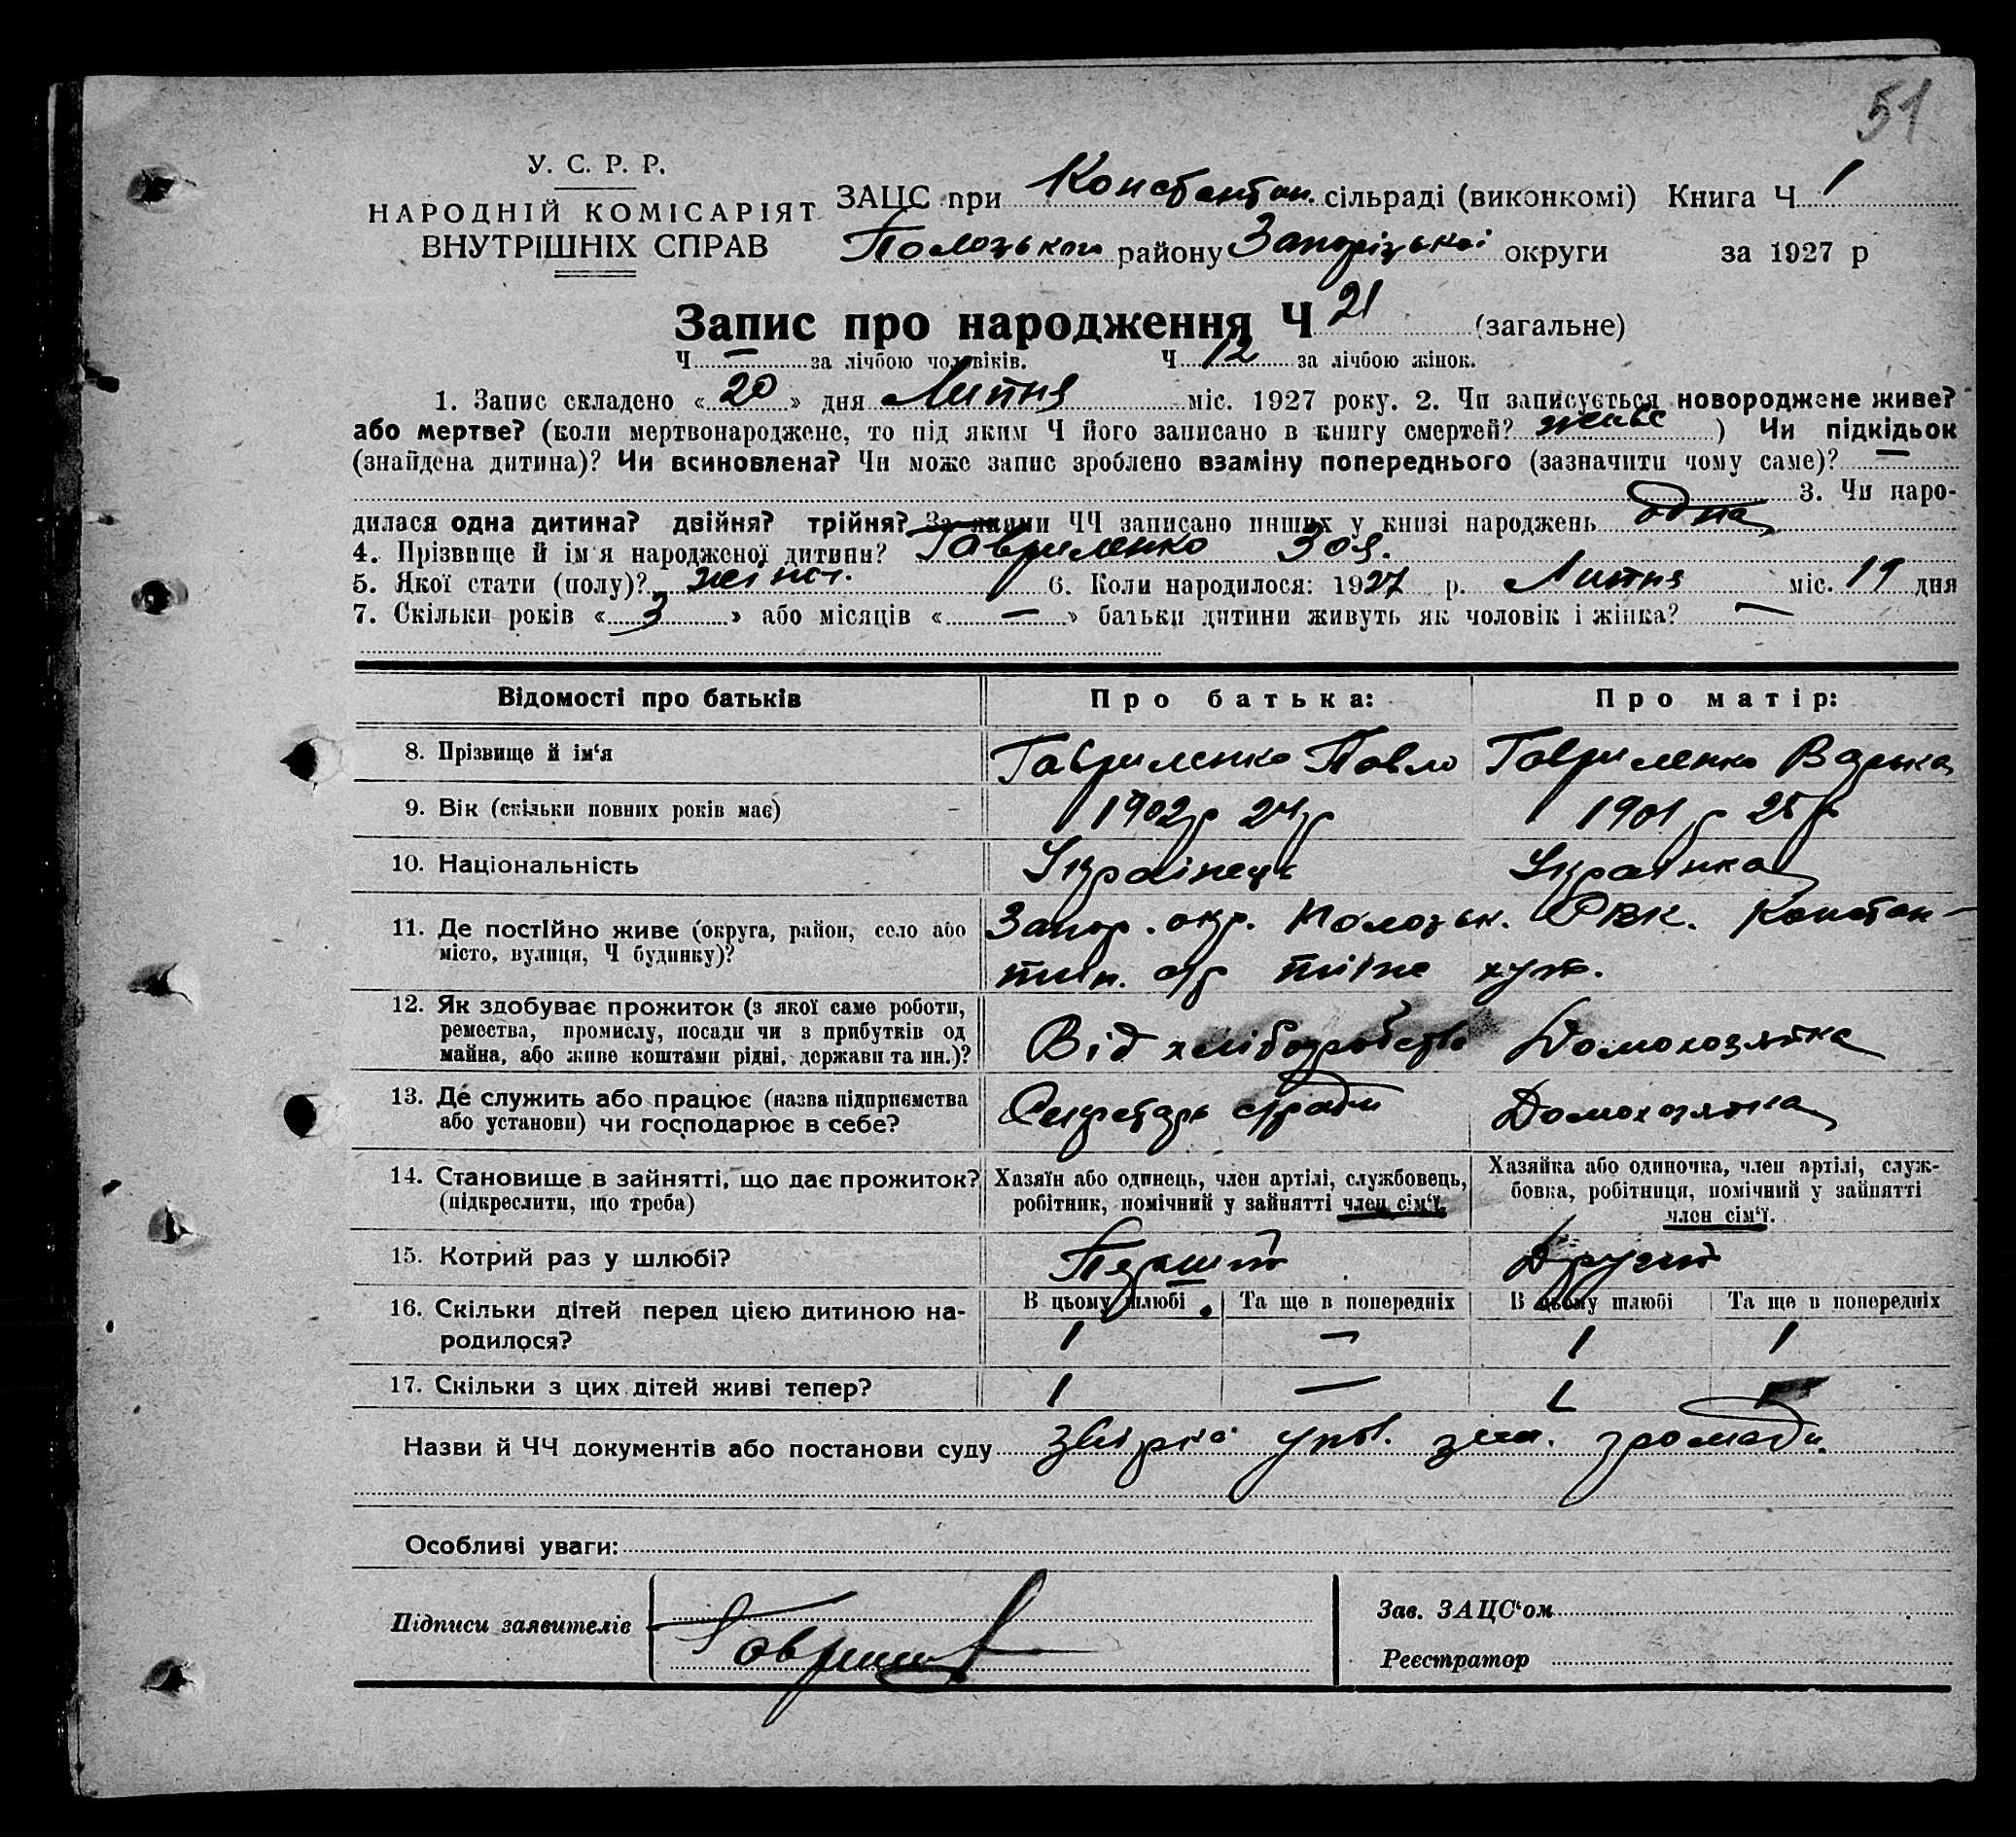 51
У. С. Р. Р.
НАРОДНІЙ КОМІСАРІЯТ
ВНУТРІШНІХ СПРАВ
ЗАЦС при Константин. сільраді (виконкомі) Книга Ч 1
Полозьком району Запорізької округи за 1927 р
Запис про народження Ч 21 (загальне)
Ч — за лічбою чоловіків. Ч 12 за лічбою жінок.
1. Запис складено «20» дня Липня міс. 1927 року. 2. Чи записується новороджене живе?
або мертве? (коли мертвонароджене, то під яким Ч його записано в книгу смертей? живе) Чи підкідьок
(знайдена дитина)? Чи всиновлена? Чи може запис зроблено взаміну попереднього (зазначити чому саме)? —
3. Чи наро-
дилася одна дитина? двійня? трійня? За якими ЧЧ записано инших у книзі народжень одна
4. Прізвище й ім'я народженої дитини? Гавриленко Зоя.
5. Якої стати (полу)? жіноч. 6. Коли народилося: 1927 р. Липня міс. 19 дня
7. Скільки років «3» або місяців «—» батьки дитини живуть як чоловік і жінка? —
Відомості про батьків Про батька: Про матір:
8. Прізвище й ім'я Гавриленко Павло Гавриленко Варька
9. Вік (скільки повних років має) 1902 р 24 р 1901 р 25 р
10. Національність Українець Українка
11. Де постійно живе (округа, район, село або
місто, вулиця, Ч будинку)?
Запор. окр. Полозьк. РВК. Констан-
тин. с/р хут.
12. Як здобуває прожиток (з якої саме роботи,
ремества, промислу, посади чи з прибутків од
майна, або живе коштами рідні, держави та ин.)?
Від хліборобства Домохозяйка
13. Де служить або працює (назва підприємства
або установи) чи господарює в себе?
Секретарь с/ради Домохозяйка
14. Становище в зайнятті, що дає прожиток?
(підкреслити, що треба)
Хазяїн або одинець, член артілі, службовець,
робітник, помічний у зайнятті член сім'ї.
Хазяйка або одиночка, член артілі, служ-
бовка, робітниця, помічний у зайнятті
член сім'ї.
15. Котрий раз у шлюбі? Перший Другий
16. Скільки дітей перед цією дитиною на-
родилося?
В цьому шлюбі Та ще в попередніх В цьому шлюбі Та ще в попередніх
1 — 1 1
17. Скільки з цих дітей живі тепер? 1 — 1
Назви й ЧЧ документів або постанови суду упов. зем. громади
Особливі уваги:
Підписи заявителів
Зав. ЗАЦС'ом
Реєстратор